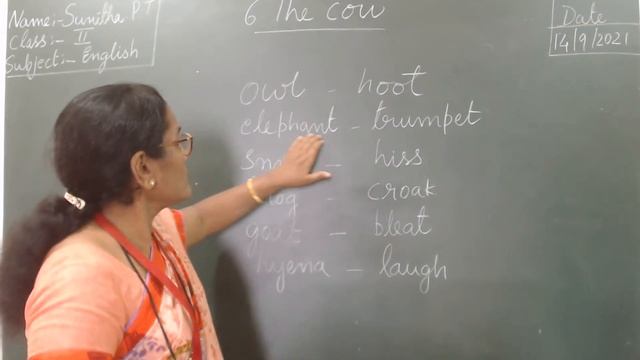 Name:- Sunitha P T
Class:- II
Subject:- English
6 The Cow
Date
14/9/2021
owl - hoot
elephant - trumpet
- hiss
- croak
goat - bleat
hyena - laugh